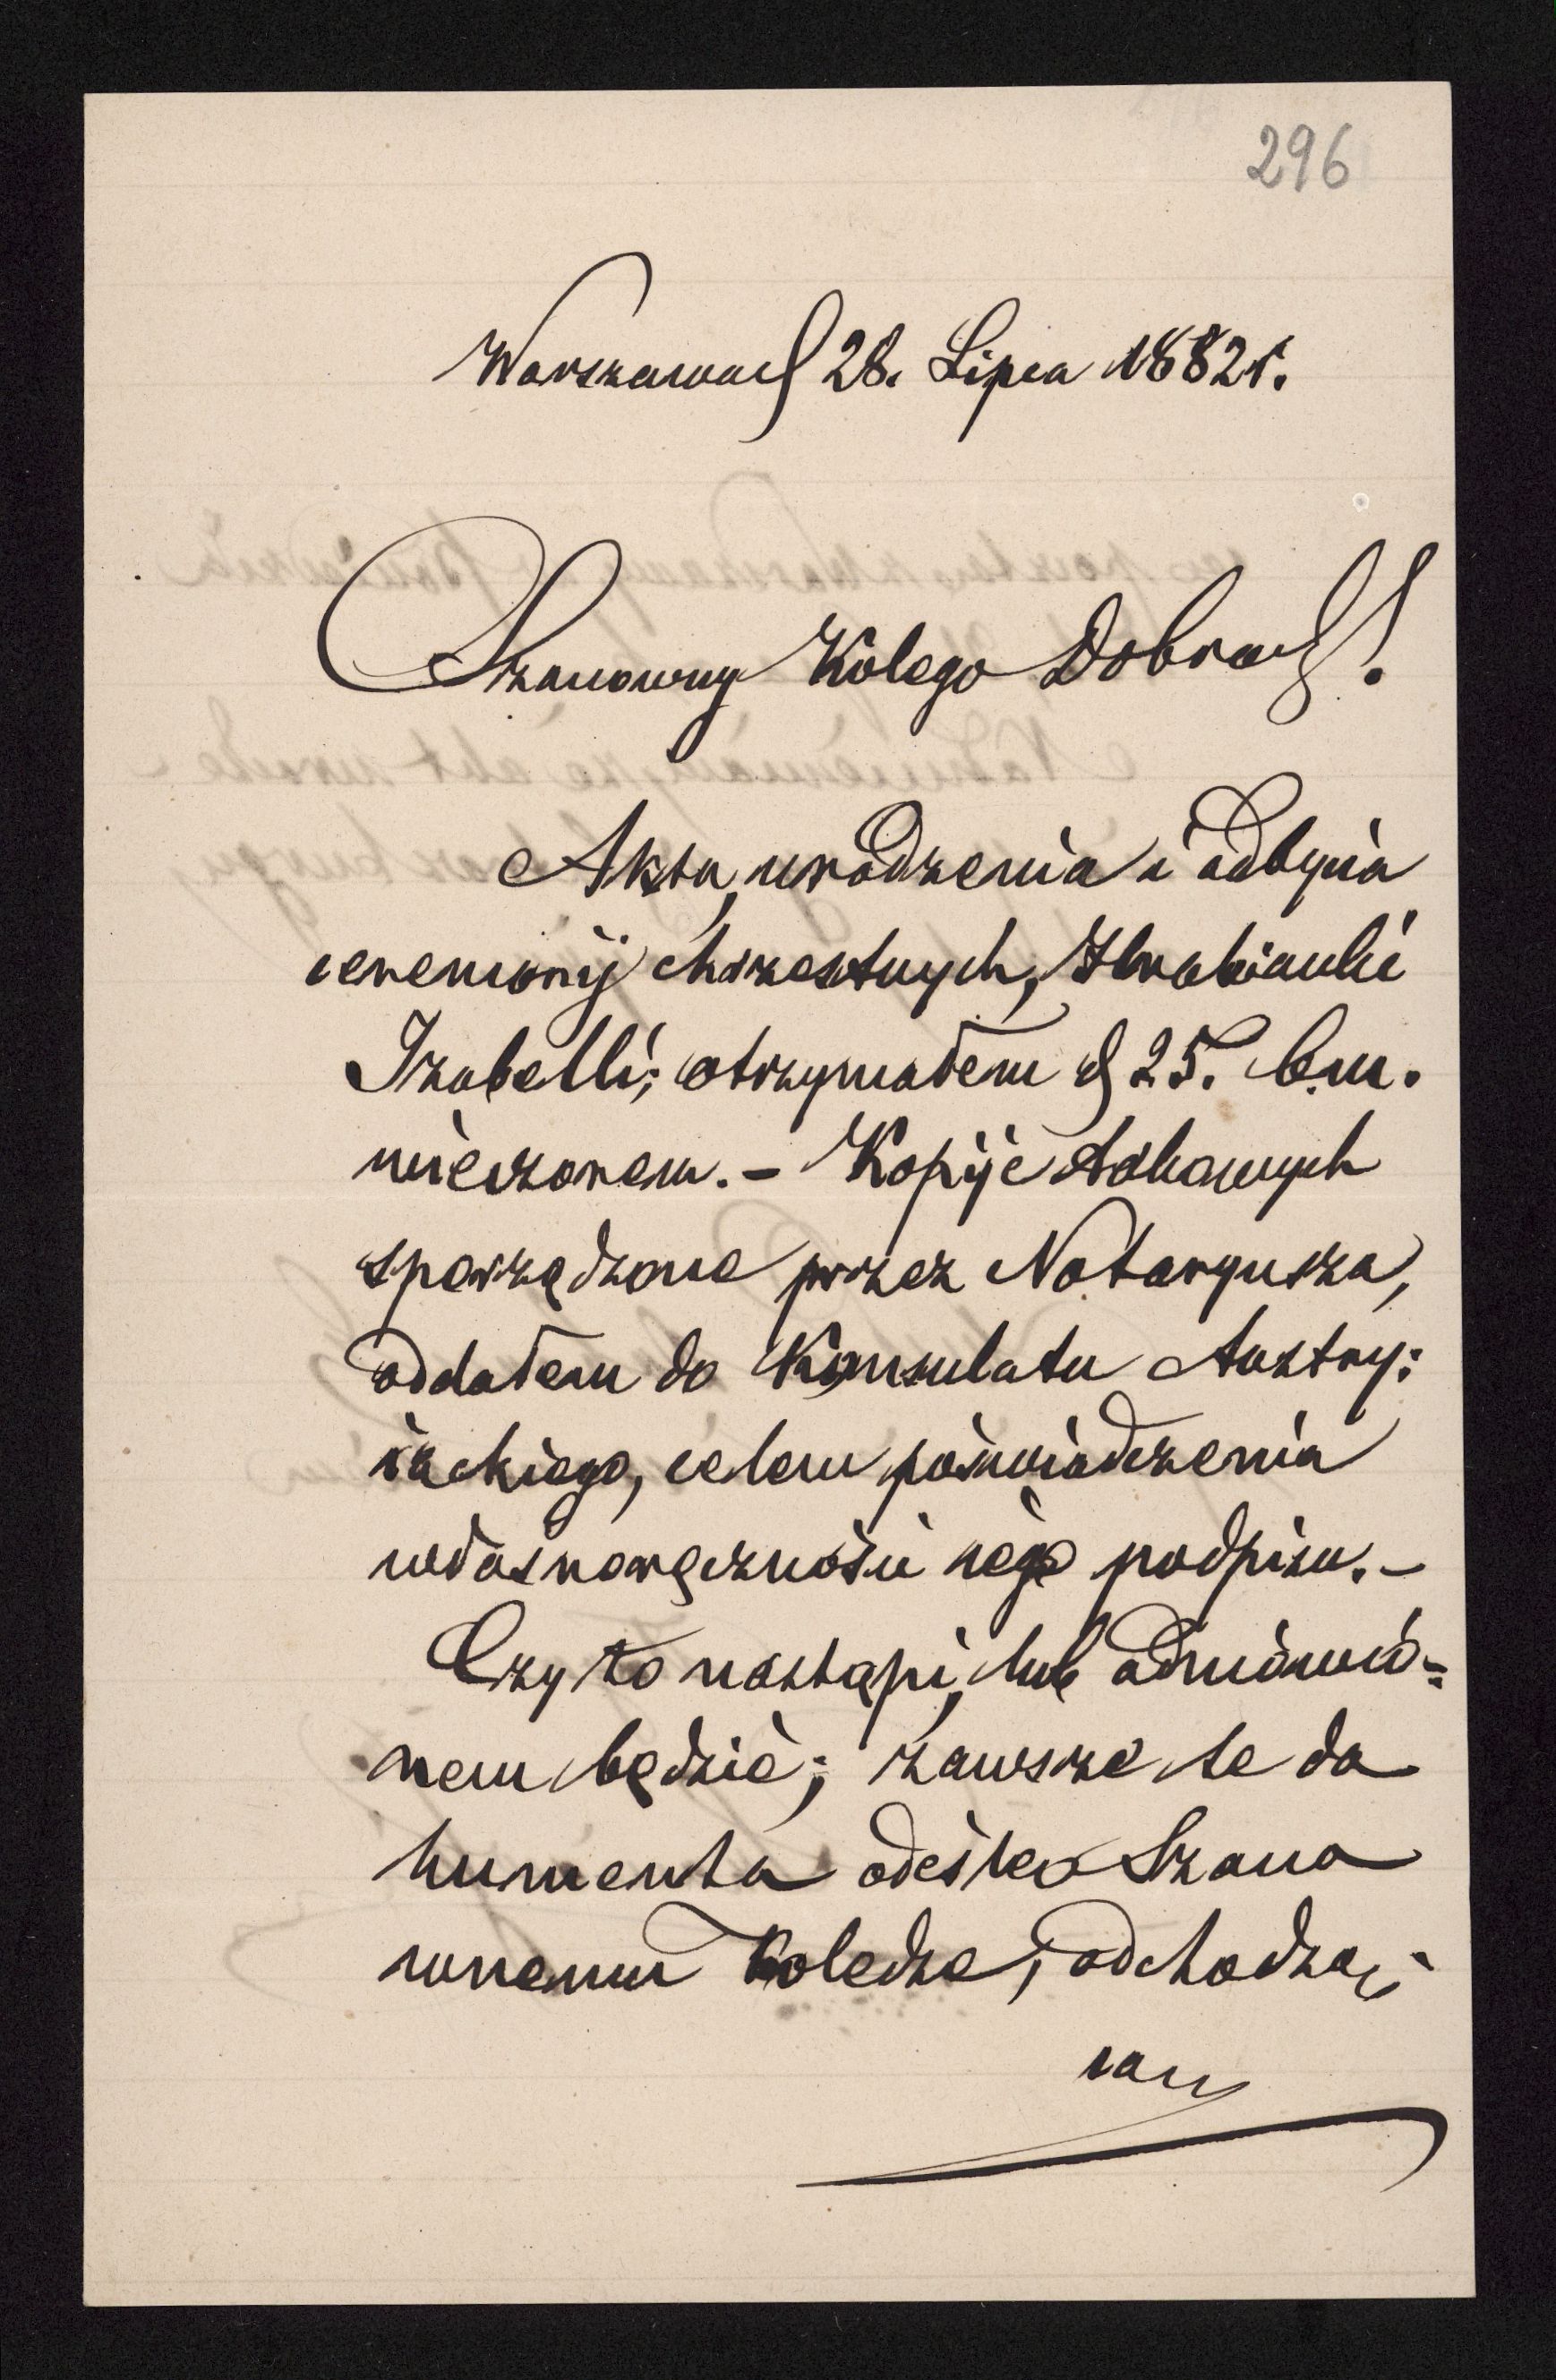 296
Warszawa d 28. Lipca 1882 r.
Szanowny Kolego Dobrod!
Akta, urodzenia i odbycia
ceremonij chrzestnych, Hrabianki
Izabelli; otrzymałem d 25. b.m.
wieczorem. – Kopije takowych
sporządzone przez Notaryusza,
oddałem do Konsulatu Austry:
iackiego, celem poświadczenia
własnoręczności jego podpisu. –
Czy to nastąpi, lub odmówio=
nem będzie; zawsze te do
kumenta odeślę Szano
wnemu Koledze, odchodzą,
cam